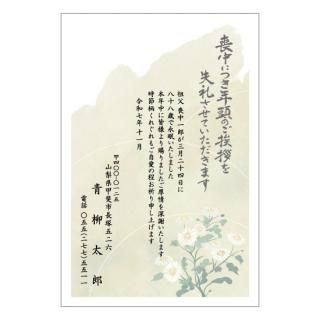 喪中につき年頭のご挨拶を
失礼させていただきます
祖父 喪中一郎が三月二十四日に
八十八歳で永眠いたしました
本年中に皆様より賜りましたご厚情を深謝いたします
時節柄くれぐれもご自愛の程お祈り申し上げます
令和七年十一月
〒四〇〇-〇一二五
山梨県甲斐市長塚五二六
青柳太郎
電話 〇五五(二七七)五五一一